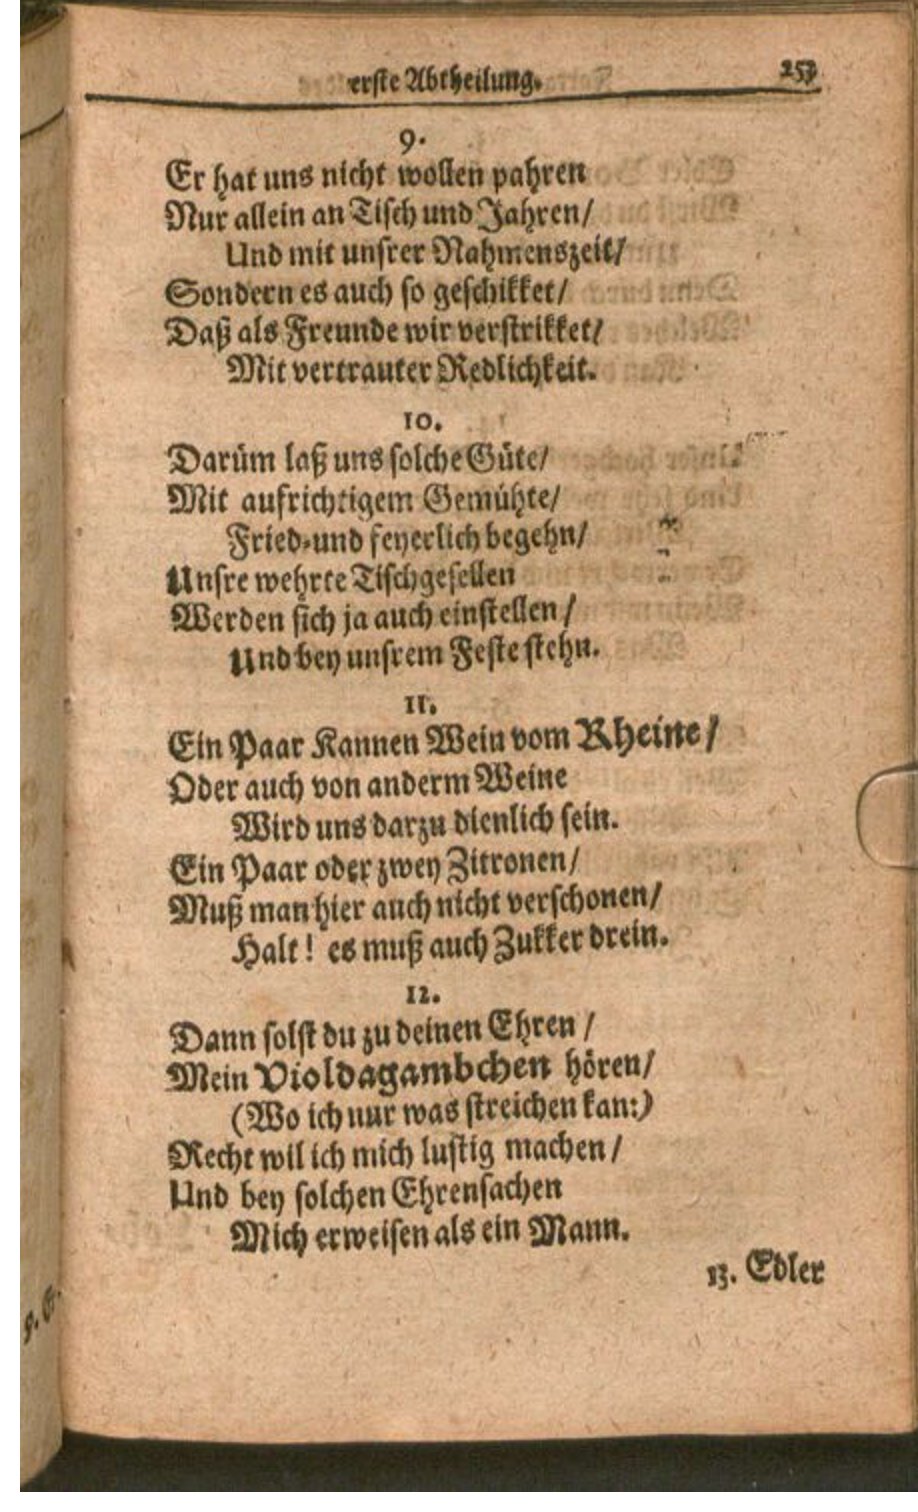 erste Abtheilung. 253
9.
Er hat uns nicht wollen pahren
Nur allein an Tisch und Jahren/
Und mit unsrer Nahmenszeit/
Sondern es auch so geschikket/
Daß als Freunde wir verstrikket/
Mit vertrauter Redlichkeit.
10.
Darüm laß uns solche Güte/
Mit aufrichtigem Gemühte/
Fried-und feyerlich begehn/
Unsre wehrte Tischgesellen
Werden sich ja auch einstellen/
Und bey unsrem Feste stehn.
11.
Ein Paar Kannen Wein vom Rheine/
Oder auch von anderm Weine
Wird uns darzu dienlich sein.
Ein Paar oder zwey Zitronen/
Muß man hier auch nicht verschonen/
Halt! es muß auch Zukker drein.
12.
Dann solst du zu deinen Ehren/
Mein Violdagambchen hören/
(Wo ich nur was streichen kan:)
Recht wil ich mich lustig machen/
Und bey solchen Ehrensachen
Mich erweisen als ein Mann.
13. Edler